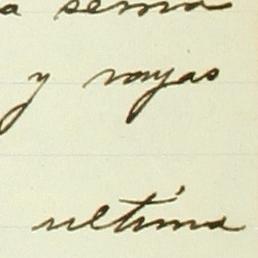 a sema
y rayas
ultima